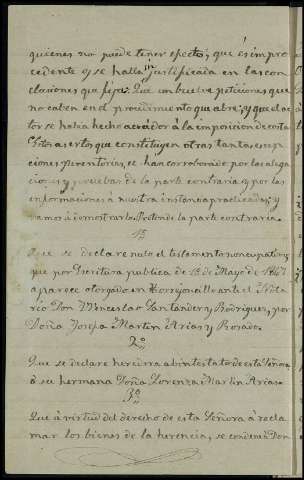 quienes no puede tener efecto; que es impro
cedente y se halla injustificada en las con
clusiones que fija; Que envuelve peticiones que
no caben en el procedimiento que abre; y que el ac
tor se había hecho acreedor á la imposición de costas.
Estos asertos, que constituyen otras tantas excep
ciones perentorias, se han corroborado por las alega
ciones y pruebas de la parte contraria y por las
informaciones á nuestra instancia practicadas; y
vamos á demostrarlo. Pretende la parte contraria.
Que se declare nulo el testamento nonuncupativo,
que por Escritura publica de 13 de Mayo de
aparece otorgado en Torrejoncillo ante el Nota
rio Don Wenceslao Santander y Rodriguez, por
Doña Josefa Martin Arias y Rosado.
2º
Que se declare heredera abintestato de esta Señora
á su hermana Doña Lorenza Martin Arias.
3º
Que á virtud del derecho de esta Señora á recla
mar los bienes de la herencia, se condene á Don